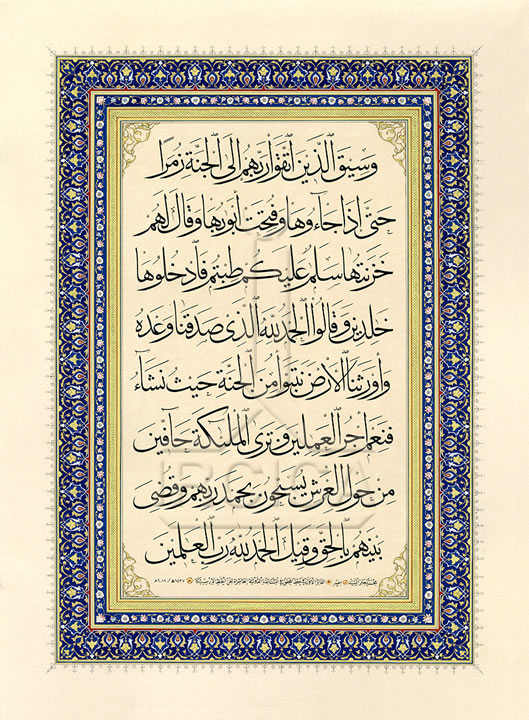 وسيق الذين اتقوا ربهم إلى الجنة زمرا
حتى إذا جاءوها وفتحت أبوبها وقال لهم
خزنتها سلم عليكم طبتم فادخلوها
خلدين وقالوا الحمد لله الذى صدقنا وعده
وأورثنا الأرض نتبوأ من الجنة حيث نشاء
فنعم أجر العملين وترى الملئكة حافين
من حول العرش يسبحون بحمد ربهم وقضى
بينهم بالحق وقيل الحمد لله رب العلمين
IRCICA